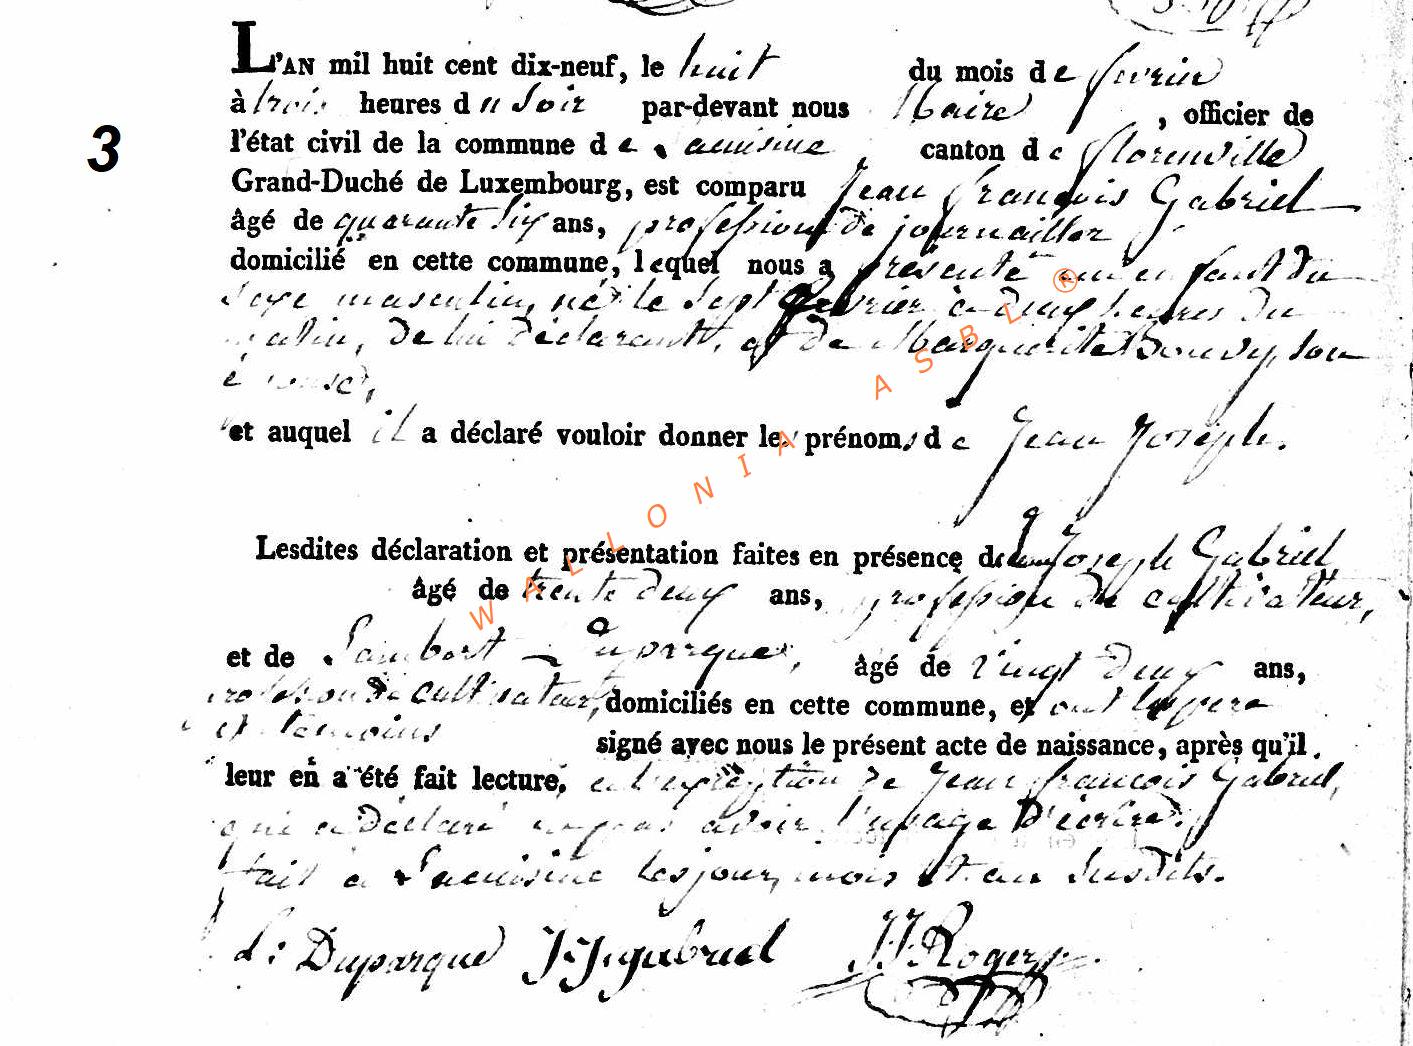 3
L'AN mil huit cent dix-neuf, le huit du mois de fevrier
à trois heures du Soir par-devant nous Maire, officier de
l'état civil de la commune de Lacuisine, canton de florenville
Grand-Duché de Luxembourg, est comparu Jean françois Gabriel
âgé de quarante six ans, profession de journaillier
domicilié en cette commune, lequel nous a présenté un enfant du
sexe masculin, né le sept fevrier à deux heures du
matin, de lui déclarant, et de Marguerite Bouvy, son
épouse,
et auquel il a déclaré vouloir donner les prénoms de Jean Joseph.
Lesdites déclaration et présentation faites en présence de Joseph Gabriel
âgé de trente deux ans, profession de cultivateur,
et de Lambert Duparque, âgé de vingt deux ans,
profession de cultivateur, domiciliés en cette commune, et ont le pere
et temoins signé avec nous le présent acte de naissance, après qu'il
leur en a été fait lecture, a l'exception de Jean françois Gabriel,
qui a déclaré ne pas avoir l'usage d'écrire.
fait à Lacuisine les jour, mois et an susdits.
L: Duparque J. J. gabriel JJ Rogery
WALLONIA ASBL ®